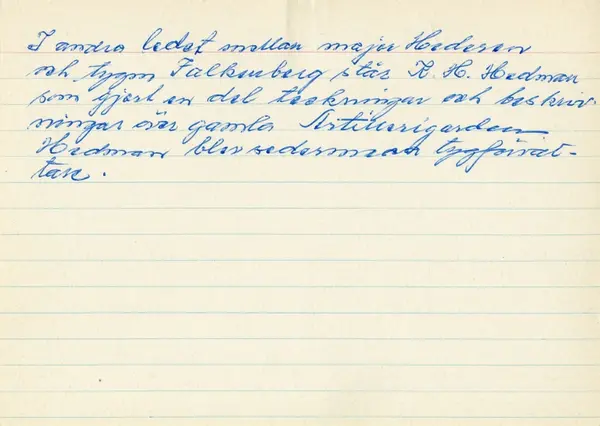 I andra ledet mellan major Hedersen
och tygm Falkenberg står K. H. Hedman
som gjort en del teckningar och beskriv-
ningar över gamla Artillerigarden
Hedman blev sedermera tygförval-
tare.